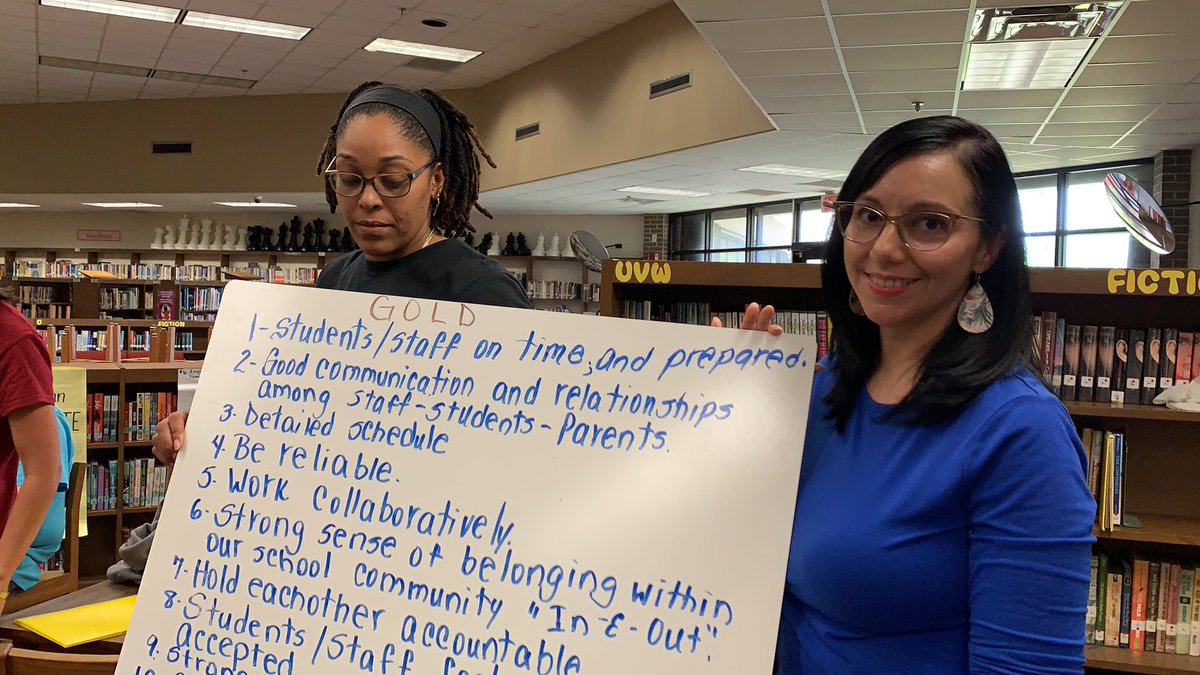 GOLD
1-Students/Staff on time, and prepared.
2- Good communication and relationships
among staff-students-Parents.
3- Detailed schedule
4. Be reliable.
5. Work collaboratively.
6- Strong sense of belonging within
our school community "In-&-Out".
7- Hold eachother accountable
8- Students/Staff feel
accepted
9. Strong
10
UVW
FICTI
FICTION